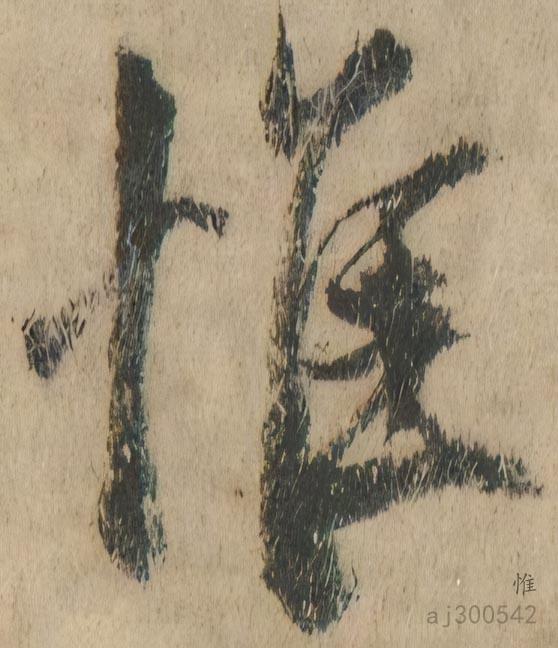 惟
惟
aj300542